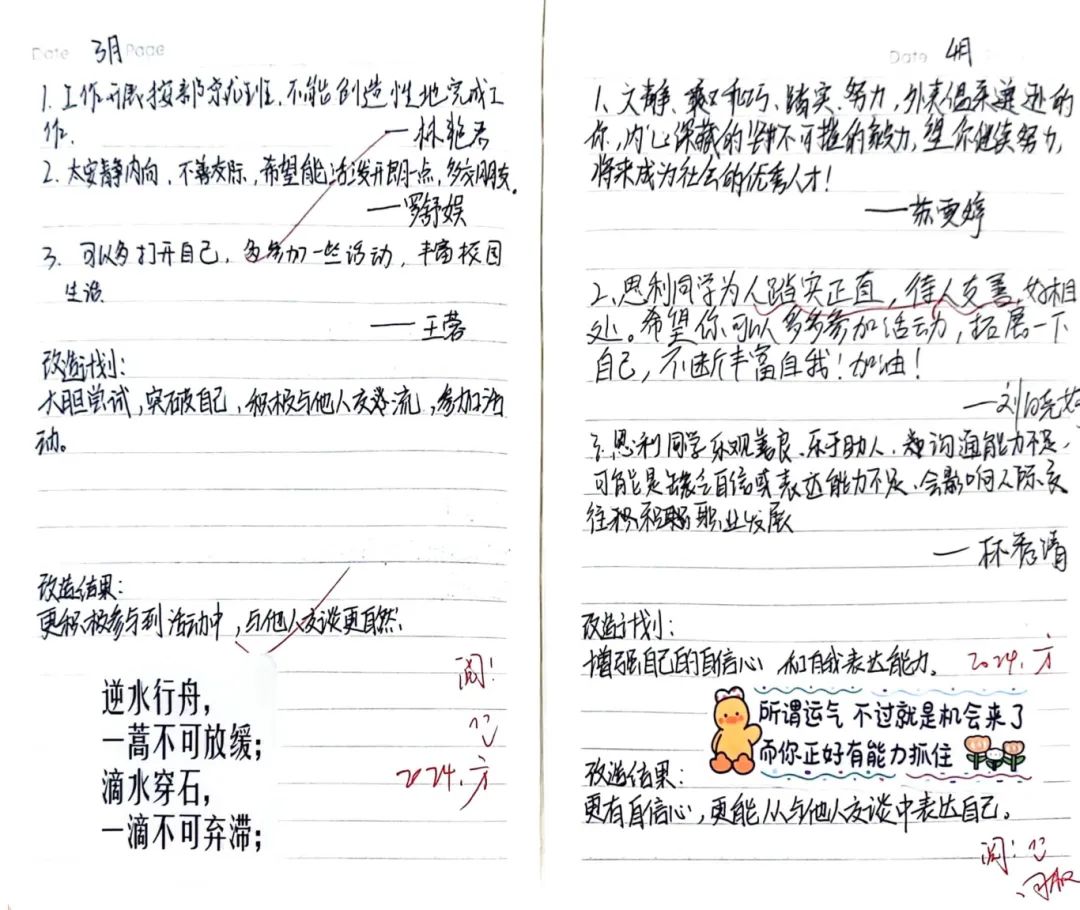 Date 3月 Page
1.工作开展按部就班,不能创造性地完成工
作.
——林艳君
2.太安静内向,不善交际,希望能活泼开朗一点,多交朋友。
——罗舒娱
3.可以多打开自己,多参加一些活动,丰富校园
生活.
——王蓉
改造计划:
大胆尝试,突破自己,积极与他人交流,参加活
动。
改造结果:
更积极参与到活动中,与他人交谈更自然.
阅!
2024.方
逆水行舟,
一蒿不可放缓;
滴水穿石,
一滴不可弃滞;
Date 4月
1、文静、乖巧、踏实、努力,外表温柔谦逊的
你,内心深藏的坚不可摧的毅力,望你继续努力,
将来成为社会的优秀人才!
——苏雯婷
2、思利同学为人踏实正直,待人友善,好相
处。希望你可以多多参加活动,拓展一下
自己,不断丰富自我!加油!
——刘晓
3.思利同学乐观善良、乐于助人,沟通能力不足,
可能是缺乏自信或表达能力不足、会影响人际交
往和职业发展
——林秀清
改造计划:
增强自己的自信心和自我表达能力。 2024.方
所谓运气 不过就是机会来了
而你正好有能力抓住
改造结果:
更有自信心,更能从与他人交谈中表达自己。
阅!